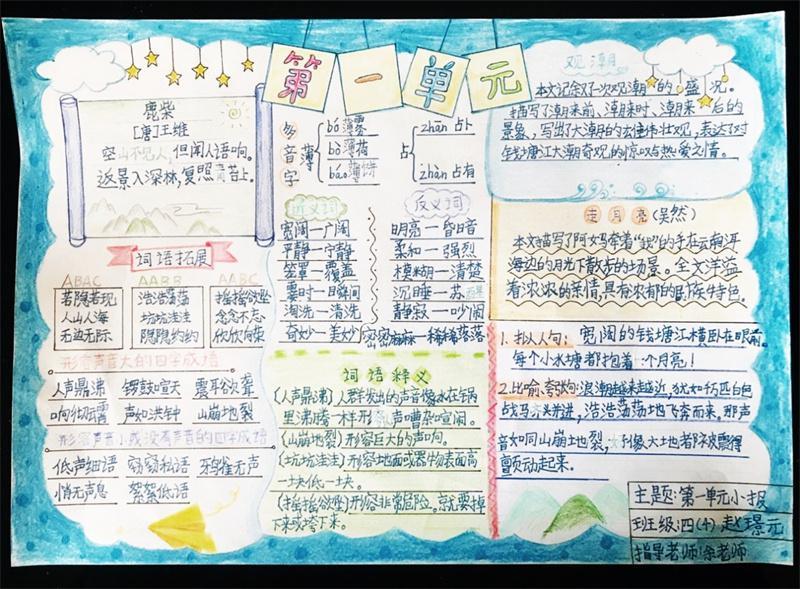 第一单元
鹿柴
[唐]王维
空山不见人,但闻人语响。
返景入深林,复照青苔上。
词语拓展
ABAC
若隐若现
人山人海
无边无际
AABB
浩浩荡荡
坑坑洼洼
隐隐约约
AABC
摇摇欲坠
念念不忘
欣欣向荣
形容声音大的四字成语
人声鼎沸 锣鼓喧天 震耳欲聋
响彻云霄 声如洪钟 山崩地裂
形容声音小或没有声音的四字成语
低声细语 窃窃私语 鸦雀无声
悄无声息 絮絮低语
多音字
薄
bó薄雾
bò薄荷
báo薄饼
占
zhān占卜
zhàn占有
近义词
宽阔—广阔
平静—宁静
笼罩—覆盖
霎时—瞬间
淘洗—清洗
奇妙—美妙
反义词
明亮—昏暗
柔和—强烈
模糊—清楚
沉睡—苏醒
静寂—吵闹
密密麻麻—稀稀落落
词语释义
(人声鼎沸)人群发出的声音像水在锅
里沸腾一样形容声嘈杂喧闹。
(山崩地裂)形容巨大的声响。
(坑坑洼洼)形容地面或器物表面高
一块低一块。
(摇摇欲坠)形容非常危险。就要掉
下来或垮下来。
观潮
本文记叙了一次观潮的盛况。
描写了潮来前、潮来时、潮来后的
景象,写出了大潮的雄伟壮观,表达了对
钱塘江大潮奇观的惊叹与热爱之情。
走月亮(吴然)
本文描写了阿妈牵着“我”的手在云南洱
海边的月光下散步的场景。全文洋溢
着浓浓的亲情,具有浓郁的民族特色。
1.拟人句:宽阔的钱塘江横卧在眼前。
每个小水塘都抱着一个月亮!
2.比喻、夸张:浪潮越来越近,犹如千万匹白色
战马齐头并进,浩浩荡荡地飞奔而来。那声
音如同山崩地裂,好像大地都被震得
颤动起来。
主题:第一单元小报
班级:四(4)赵璟元
指导老师:余老师